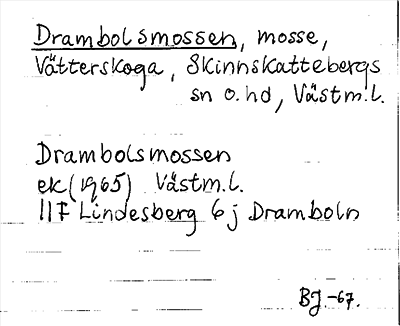 Drambolsmossen, mosse,
Vätterskoga, Skinnskattebergs
sn o. hd, Västm.l.
Drambolsmossen
ek (1965) Västm.l.
11F Lindesberg 6j Dramboln
BJ.-67.